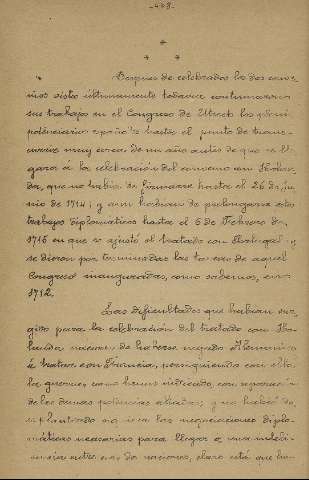 -438-
*
* *
Despues de celebrados los dos conve-
nios visto últimamente todavia continuaron
sus trabajos en el Congreso de Utrech los pleni-
potenciarios españoles hasta el punto de trans-
currir muy cerca de un año antes de que se lle-
gara á la celebración del convenio con Holan-
da, que no habia de firmarse hasta el 26 de ju-
nio de 1714; y aun habian de prolongarse estos
trabajos diplomáticos hasta el 6 de Febrero de
1715 en que se ajustó el tratado con Portugal y
se dieron por terminadas las tareas de aquel
Congreso inauguradas, como sabemos, en
1712.
Las dificultades que habian sur-
gido para la celebración del tratado con Ho-
landa nacian de haberse negado Alemania
á tratar con Francia, prosiguiendo con ella
la guerra, como hemos indicado, con separación
de las demas potencias aliadas; y no habiendo
las negociaciones diplo-
máticas necesarias para llegar a una
entre naciones, claro está que